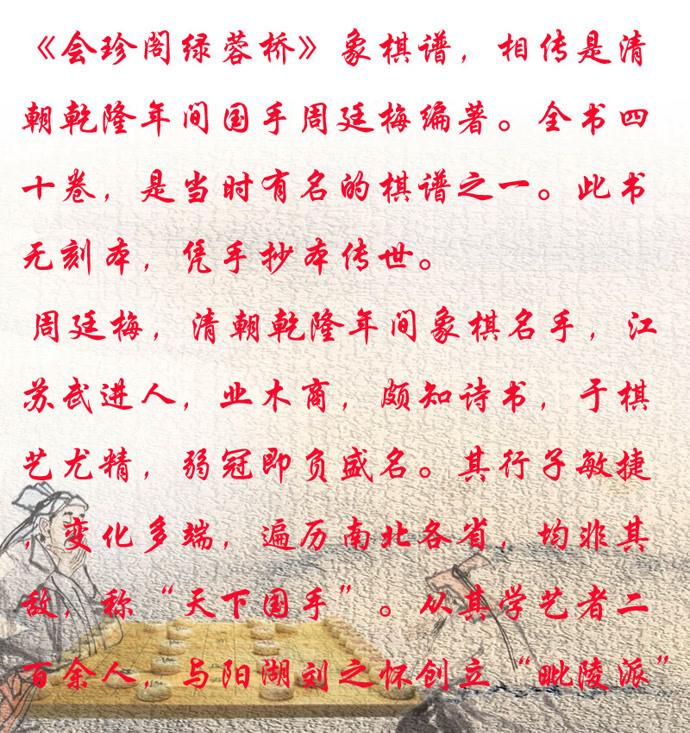 《会珍阁绿蓉桥》象棋谱，相传是清
朝乾隆年间国手周廷梅编著。全书四
十卷，是当时有名的棋谱之一。此书
无刻本，凭手抄本传世。
周廷梅，清朝乾隆年间象棋名手，江
苏武进人，业木商，颇知诗书，于棋
艺尤精，弱冠即负盛名。其行子敏捷
，变化多端，遍历南北各省，均非其
敌，称“天下国手”。从其学艺者二
百余人，与阳湖刘之怀创立“毗陵派”